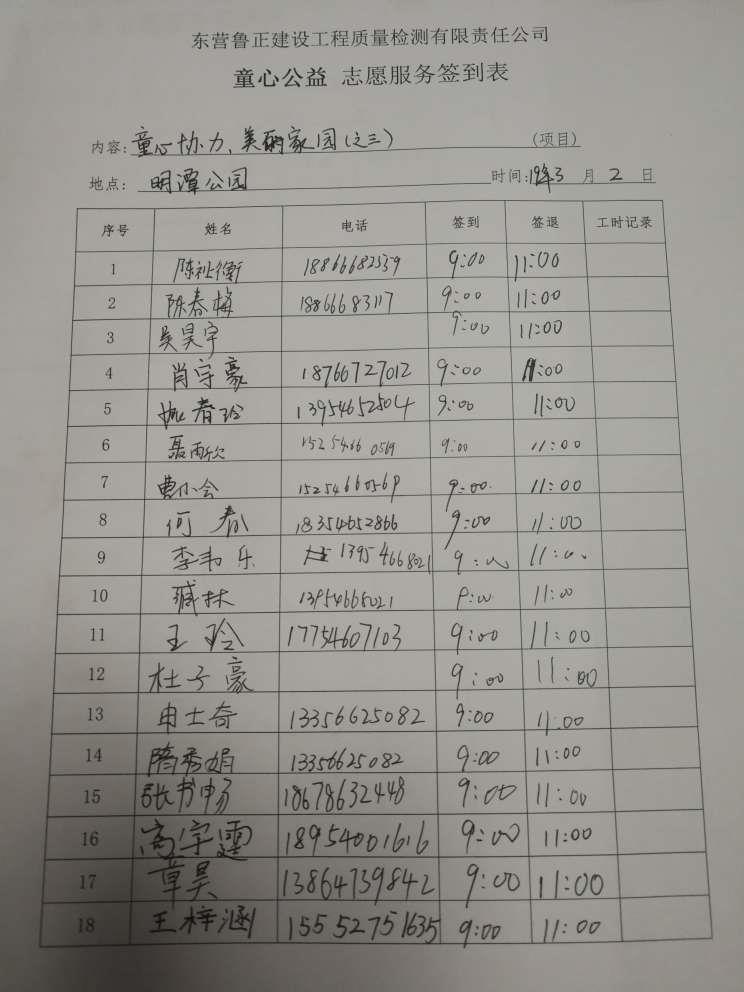 东营鲁正建设工程质量检测有限责任公司
童心公益 志愿服务签到表
内容:童心协力、美丽家园(之三) (项目)
地点: 明潭公园 时间:19年3月2日
序号 姓名 电话 签到 签退 工时记录
1 陈祉衡 18866682539 9:00 11:00
2 陈春梅 18866683117 9:00 11:00
3 吴昊宇 9:00 11:00
4 肖宇豪 18766727012 9:00 11:00
5 春玲 13954652504 9:00 11:00
6 聂雨欣 15254660569 9:00 11:00
7 曹小会 15254660569 9:00 11:00
8 何春 18354652866 9:00 11:00
9 李韦乐 13954668021 9:00 11:00
10 臧林 13954668021 9:00 11:00
11 王玲 17754607103 9:00 11:00
12 杜子豪 9:00 11:00
13 申士奇 13356625082 9:00 11:00
14 隋秀娟 13356625082 9:00 11:00
15 张书畅 18678632448 9:00 11:00
16 高宇霆 18954001616 9:00 11:00
17 章昊 13864739842 9:00 11:00
18 王梓涵 15552751635 9:00 11:00